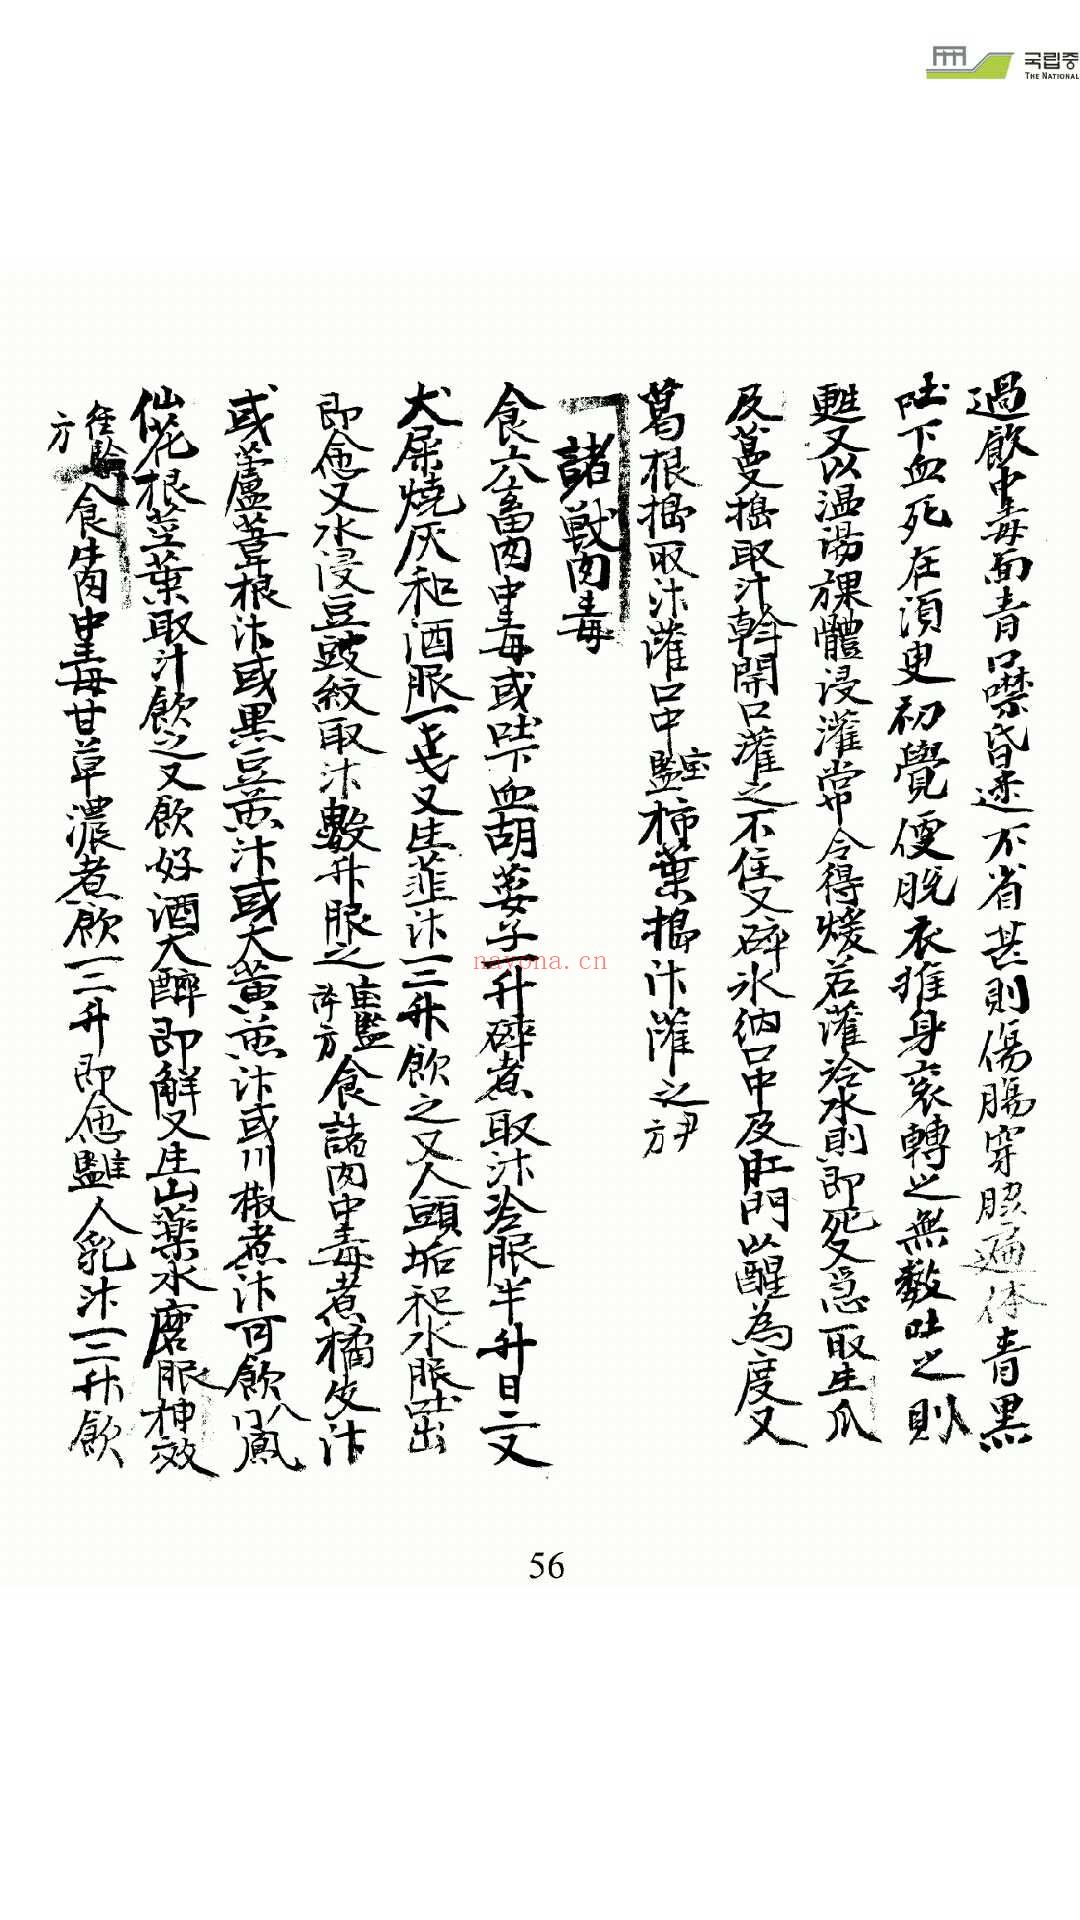 국립중
THE NATIONAL
過飮中毒面青口噤昏迷不省甚則傷腸穿脇遍体青黑
吐下血死在須臾初覺便脫衣推身衮轉之無數吐之則
甦又以温湯裸體浸灌常令得煖若灌冷水則即死又急取生瓜
及蔓搗取汁斡開口灌之不住又碎氷納口中及肛門以醒為度又
葛根搗取汁灌口中 柿葉搗汁灌之
諸獸肉毒
食六畜肉中毒或吐下血胡荽子一升碎煮取汁冷服半升日二又
犬屎燒灰和酒服一戔又生韮汁一二三升飮之又人頭垢和水服吐出
即愈又水浸豆豉絞取汁數升服之 食諸肉中毒煮橘皮汁
或蘆葦根汁或黑豆煎汁或大黃煎汁或川椒煮汁可飮
仙花根莖葉取汁飮之又飮好酒大醉即解又生山藥水磨服神效
食牛肉中毒甘草濃煮飮一二升即愈 人乳汁一二升飮
nayona.cn
56